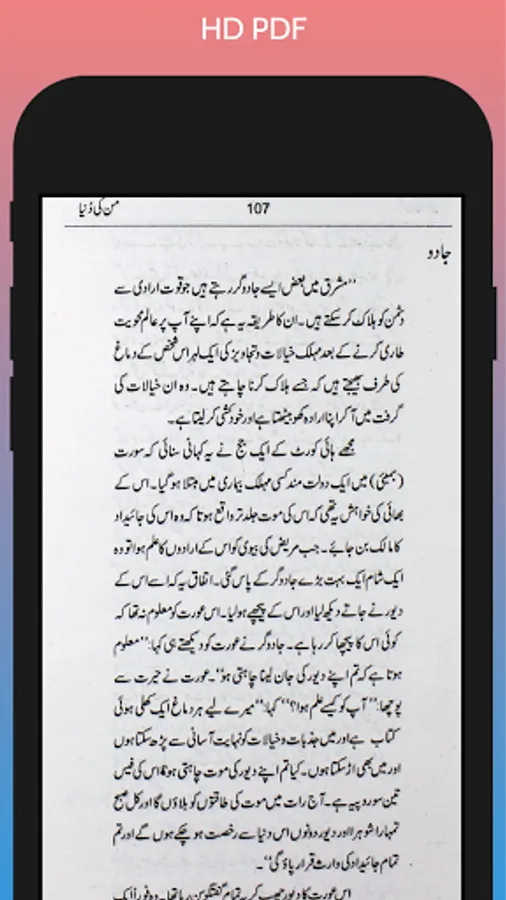 HD PDF
من کی دُنیا
107
جادو
”مشرق میں بعض ایسے جادوگر رہتے ہیں جو قوت ارادی سے
دشمن کو ہلاک کر سکتے ہیں۔ ان کا طریقہ یہ ہے کہ اپنے آپ پر عالم محویت
طاری کرنے کے بعد مہلک خیالات و تجاویز کی ایک لہر اس شخص کے دماغ
کی طرف بھیجتے ہیں کہ جسے ہلاک کرنا چاہتے ہیں۔ وہ ان خیالات کی
گرفت میں آ کر اپنا ارادہ کھو بیٹھتا ہے اور خودکشی کر لیتا ہے۔
مجھے ہائی کورٹ کے ایک جج نے یہ کہانی سنائی کہ سورت
(بمبئی) میں ایک دولت مند کسی مہلک بیماری میں مبتلا ہو گیا۔ اس کے
بھائی کی خواہش یہ تھی کہ اس کی موت جلد تر واقع ہو تا کہ وہ اس کی جائیداد
کا مالک بن جائے۔ جب مریض کی بیوی کو اس کے ارادوں کا علم ہوا تو وہ
ایک شام ایک بہت بڑے جادوگر کے پاس گئی۔ اتفاق یہ کہ اسے اس کے
دیور نے جاتے دیکھ لیا اور اس کے پیچھے ہو لیا۔ اس عورت کو معلوم نہ تھا کہ
کوئی اس کا پیچھا کر رہا ہے۔ جادوگر نے عورت کو دیکھتے ہی کہا: ”معلوم
ہوتا ہے کہ تم اپنے دیور کی جان لینا چاہتی ہو“۔ عورت نے حیرت سے
پوچھا: ”آپ کو کیسے علم ہوا؟“ کہا: ”میرے لیے ہر دماغ ایک کھلی ہوئی
کتاب ہے اور میں جذبات و خیالات کو نہایت آسانی سے پڑھ سکتا ہوں
اور میں بھی اڑ سکتا ہوں۔ کیا تم اپنے دیور کی موت چاہتی ہو؟ اس کی فیس
تین سو روپیہ ہے۔ آج رات میں موت کی طاقتوں کو بلاؤں گا اور کل صبح
تمہارا شوہر اور دیور دونوں اس دنیا سے رخصت ہو چکے ہوں گے اور تم
تمام جائیداد کی وارث قرار پاؤ گی“۔
اس عورت کا دیور چھپ کر یہ تمام گفتگو سن رہا تھا۔ وہ فوراً ایک